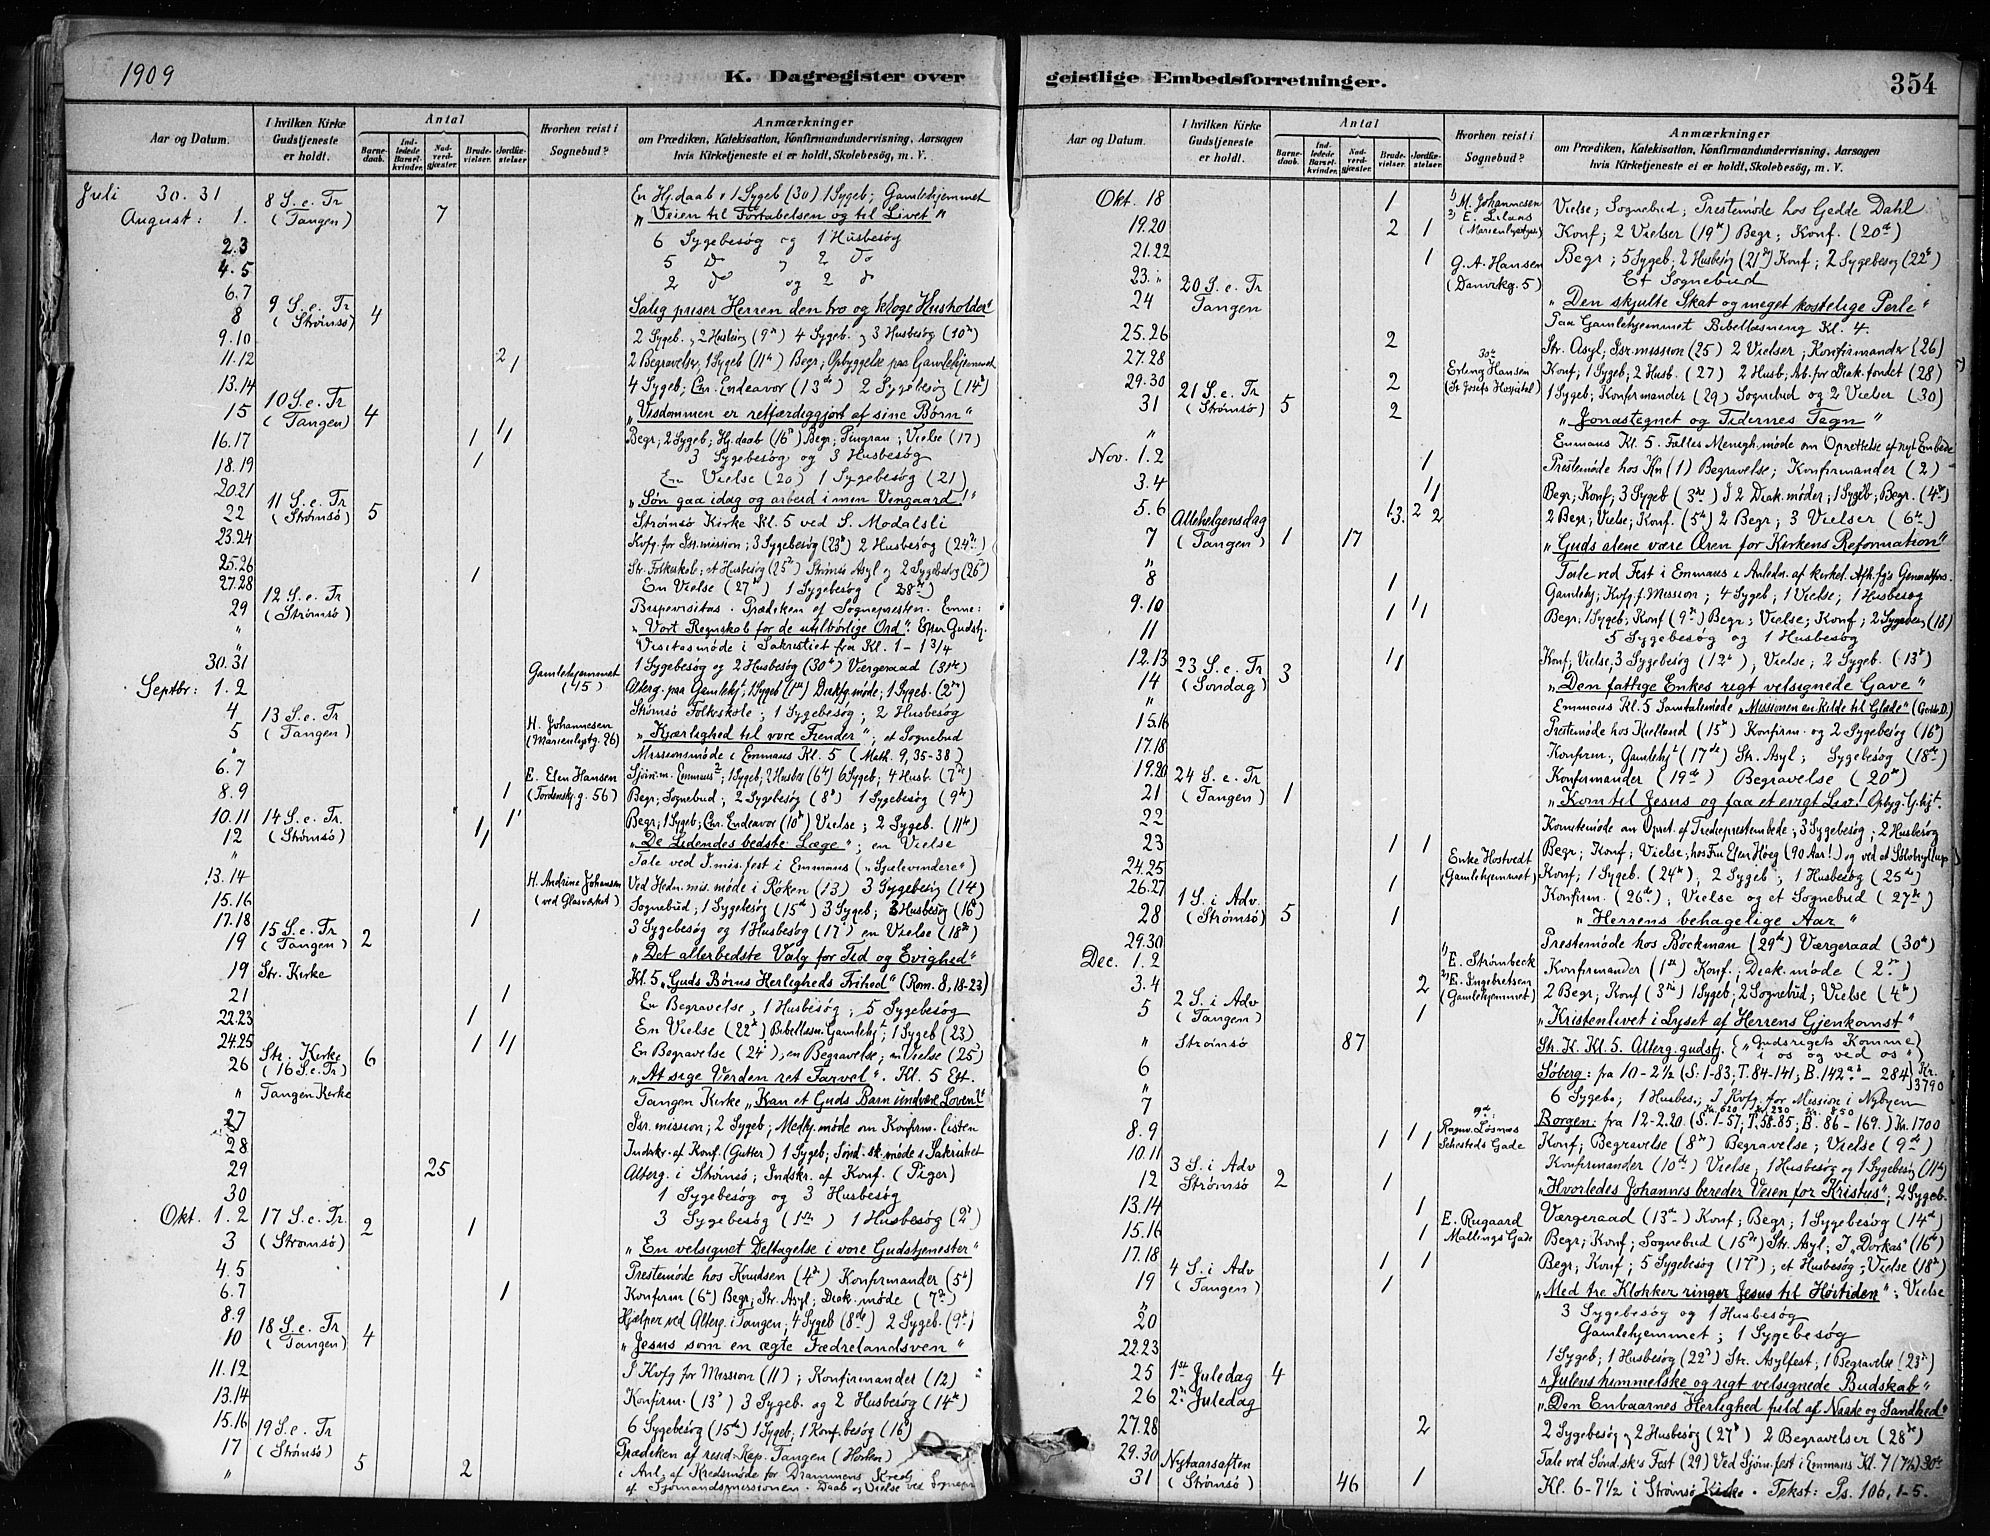 1909
K. Dagregister over
geistlige Embedsforretninger.
354
Aar og Datum.
I hvilken Kirke Gudstjeneste er holdt.
Antal
Barnedaab.
Indledede Barselkvinder.
Nadverdgjæster.
Brudevielser.
Jordfæstelser
Hvorhen reist i Sognebud?
Anmærkninger
om Prædiken, Katekisation, Konfirmandundervisning, Aarsagen
hvis Kirketjeneste ei er holdt, Skolebesøg, m. V.
Juli 30. 31 En Hj.daab 1 Sygeb (30) 1 Sygeb; Gamlehjemmet
August: 1. 8 S. e. Tr (Tangen) 7 „Veien til Fortabelsen og til Livet"
2.3 6 Sygebesøg og 1 Husbesøg
4.5 5 Do „ 2 Do
6.7 2 Do og 2 do
8 9 S. e. Tr (Strømsø) 4 Salig priser Herren den tro og kloge Husholder"
9.10 2 Sygeb. 2 Husbesøg (9de) 4 Sygeb. og 3 Husbesøg (10de)
11.12 2 1 2 Begravelser, 1 Sygeb (11te) Begr; Opbyggelse paa Gamlehjemmet
13.14 4 Sygeb; Chr. Endeavor (13de) 2 Sygebesøg (14de)
15 10 S. e. Tr (Tangen) 4 „Visdommen er retfærdiggjort af sine Børn"
16.17 1 1/1 Begr; 2 Sygeb; Hj.daab (16de) Begr; Vielse (17)
18.19 1 3 Sygebesøg og 3 Husbesøg
20.21 En Vielse (20) 1 Sygebesøg (21)
22 11 S. e. Tr (Strømsø) 5 „Søn gaa idag og arbeid i min Vingaard!"
23.24 Strømsø Kirke Kl. 5 ved S. Modalsli
Kvfg. for Isr. mission; 3 Sygebesøg (23de) 2 Husbesøg (24de)
25.26 1 Str. Folkeskole; et Husbesøg (25de) Strømsø Asyl og 2 Sygebesøg (26de)
27.28 En Vielse (27de) 1 Sygebesøg (28de)
29 12 S. e. Tr (Strømsø) Bispevisitas. Prædiken af Sognepresten. Emne:
" „Vort Regnskab for de utilbørlige Ord". Efter Gudstj.
" Visitasmøde i Sakristiet fra Kl. 1 - 1 3/4
30.31 1 Sygebesøg og 2 Husbesøg (30te) Værgeraad (31te)
Septbr: 1.2 Gamlehjemmet (45) Alterg. paa Gamlehj; 1 Sygeb (1ste) Diakfg.møde; 1 Sygeb. (2den)
4 Strømsø Folkskole; 1 Sygebesøg; 2 Husbesøg
5 13 S. e. Tr (Tangen) H. Johannesen (Marienlystg. 26) „Kjærlighed til vore Fiender"; et Sognebud
" Missionsmøde i Emmaus Kl. 5 (Math. 9, 35-38)
6.7 E. Elen Hansen (Tordenskj. g. 56) Sjøm.m. Emmaus; 1 Sygeb, 2 Husbes (6te) 6 Sygeb; 4 Husb. (7de)
8.9 1 Begr; Sognebud; 2 Sygebesøg (8de) 1 Sygebesøg (9de)
10.11 1 Begr; 1 Sygeb; Chr. Endeavor (10de) Vielse; 2 Sygeb. (11te)
12 14 S. e. Tr (Strømsø) 1/1 „De Lidendes bedste Læge"; en Vielse
" Tale ved I. mis. fest i Emmaus („Sjælevindere")
13.14 H. Andrine Johansen (ved Glasværket) Ved Hedn. mis. møde i Røken (13) 3 Sygebesøg (14)
15.16 Sognebud; 1 Sygebesøg (15de) 3 Sygeb; 3 Husbesøg (16de)
17.18 1 3 Sygebesøg og 1 Husbesøg (17) en Vielse (18de)
19 15 S. e. Tr (Tangen) 2 „Det allerbedste Valg for Tid og Evighed"
19 Str. Kirke Kl. 5 „Guds Børns Herligheds Frihed" (Rom. 8, 18-23)
21 1 En Begravelse, 1 Husbesøg; 5 Sygebesøg
22.23 1 En Vielse (22de) Bibellæsn. Gamlehjt; 1 Sygeb (23)
24.25 1 1/1 En Begravelse (24de), en Begravelse; en Vielse (25)
26 Str. Kirke (16 S. e. Tr) 6 „At sige Verden ret Farvel". Kl. 5 Eft.
" Tangen Kirke Tangen Kirke „Kan et Guds Barn undvære Loven?"
27 Isr. mission; 2 Sygeb; Medhj.møde om Konfirm. listen
28 Indskr. af Konf. (Gutter) 1 Sygeb; Sønd. sk. møde i Sakristiet
29 25 Alterg. i Strømsø; Indskr. af Konf. (Piger)
30 1 Sygebesøg og 3 Husbesøg
Okt. 1.2 3 Sygebesøg (1ste) 1 Husbesøg (2)
3 17 S. e. Tr. (Strømsø) 2 1 „En velsignet Deltagelse i vore Gudstjenester"
4.5 Prestemøde hos Knudsen (4de) Konfirmander (5te)
6.7 1 Konfirm (6te) Begr; Str. Asyl; Diak. møde (7de)
8.9 Hjælper ved Alterg. i Tangen; 4 Sygeb (8de) 2 Sygeb. (9de)
10 18 S. e. Tr (Tangen) 4 „Jesus som en ægte Fædrelandsven"
11.12 I Kvfg for Mission (11); Konfirmander (12)
13.14 Konfirm. (13de) 3 Sygeb. og 2 Husbesøg (14de)
15.16 6 Sygebesøg (15de) 1 Sygeb, 1 Konf. besøg (16)
17 19 S. e. Tr (Strømsø) 5 2 Prædiken af resid. Kap. Tangen (Horten)
" i Anl. af Kredsmøde for Drammens Kreds
af Sjømandsmissionen. Daab og Vielse ved Sognepr
Aar og Datum.
I hvilken Kirke Gudstjeneste er holdt.
Antal
Barnedaab.
Indledede Barselkvinder.
Nadverdgjæster.
Brudevielser.
Jordfæstelser.
Hvorhen reist i Sognebud?
Anmærkninger
om Prædiken, Katekisation, Konfirmandundervisning, Aarsagen
hvis Kirketjeneste ei er holdt, Skolebesøg, m. V.
Okt. 18 1 1) M. Johannesen 2) E. Erlans (Marienlystgt) Vielse; Sognebud; Prestemøde hos Gedde Dahl
19.20 2 1 Konf; 2 Vielser (19de) Begr; Konf. (20de)
21.22 1 G. A. Hansen (Danvikg. 5) Begr; 5 Sygeb; 2 Husbesøg (21de) Konf; 2 Sygebesøg (22de)
23. " Et Sognebud
24 20 S. e. Tr Tangen „Den skjulte Skat og meget kostelige Perle"
Paa Gamlehjemmet Bibellæsning Kl. 4.
25.26 2 Str. Asyl; Isr. mission (25) 2 Vielser; Konfirmander (26)
27.28 30te Erling Hansen (St. Josefs Hospital) Konf; 1 Sygeb; 2 Husb. (27) 2 Husb; Arb. for Diak. fondet (28)
29.30 2 1 Sygeb; Konfirmander (29) Sognebud og 2 Vielser (30)
31 21 S. e. Tr (Strømsø) 5 2 „Jonastegnet og Tidernes Tegn"
" Emmaus Kl. 5. Fælles Menigh.møde om Oprettelse af nyt Embede
Nov. 1.2 1 Prestemøde hos Kn (1) Begravelse; Konfirmander (2)
3.4 1/1 Begr; Konf; 3 Sygeb (3die) I 2 Diak. møder; 1 Sygeb; Begr. (4de)
5.6 1 3 2 2 2 Begr; Vielse; Konf. (5te) 2 Begr; 3 Vielser (6te)
7 Allehelgensdag (Tangen) 1 17 „Guds alene være Æren for Kirkens Reformation"
" Tale ved Fest i Emmaus i Anledn. af kirkel. Afh.fg's Generalfors.
8 1 Gamlehj; Kvfg. f. Mission; 4 Sygeb; 1 Vielse; 1 Husbesøg
9.10 1 1/1 Begr; 1 Sygeb; Konf (9de) Begr; Vielse; Konf; 2 Sygebes (10)
11 5 Sygebesøg og 1 Husbesøg
12.13 1/1 Konf; Vielse, 3 Sygebesøg (12te); Vielse; 2 Sygeb. (13de)
14 23 S. e. Tr (Søndag) 3 „Den fattige Enkes rigt velsignede Gave"
" Emmaus Kl. 5 Samtalemøde „Missionen en Kilde til Glæde"
15.16 Prestemøde hos Kielland (15de) Konfirm. og 2 Sygebesøg (16de)
17.18 Konfirm, Gamlehj (17de) Str. Asyl; Sygebesøg (18de)
19.20 Konfirmander (19de) Begravelse (20de)
21 24 S. e. Tr (Tangen) 1 „Kom til Jesus og faa et evigt Liv! Opbyg. G.hjt.
22 Komitemøde an Opret. af Tredieprestembede; 3 Sygebesøg; 2 Husbesøg
23 1 1 Begr; Konf; Vielse; hos Fru Elen Høeg (90 Aar!) og ved et Sølvbryllup
24.25 Enke Hostvedt (Gamlehjemmet) Konf; 1 Sygeb. (24de), 2 Sygeb; 1 Husbesøg (25de)
26.27 1 Konfirm. (26de); Vielse og et Sognebud (27de)
28 1 S. i Adv. (Strømsø) 5 1 „Herrens behagelige Aar"
29.30 Prestemøde hos Bøckman (29de) Værgeraad (30te)
Dec. 1.2 1) E. Strømbeck 2) E. Ingebretsen (Gamlehjemmet) Konfirmander (1ste) Konf; Diak. møde (2den)
3.4 2 2 Begr; Konf (3die) 1 Sygeb; 2 Sognebud; Vielse (4de)
5 2 S. i Adv (Tangen) 1 „Kristenlivet i Lyset af Herrens Gjenkomst"
" Strømsø 87 Str. K. Kl. 5. Alterg. gudstj. („Gudsrigets Komme i os og ved os")
6 Søberg: fra 10 - 2 1/2 (S. 1-83; T. 84-141; B. 142 - 284) Kr. 3790
" 6 Sygeb; 1 Husbes.; I Kvfg. for Mission i Nybyen
7 Borgen: fra 12-2.20. (S. 1-57; T. 58-85; B. 86-169.) Kr. 1700
8.9 9de: Ragnv. Løsnes Schesteds Gade 1 1/1 Konf; Begravelse (8de) Begravelse; Vielse (9de)
10.11 Konfirmander (10de) Vielse; 1 Husbesøg og 1 Sygebesøg (11te)
12 3 S. i Adv Strømsø 2 1 „Hvorledes Johannes bereder Veien for Kristus"; 2 Sygeb.
13.14 1 Værgeraad (13de) Konf; Begr; 1 Sygebesøg (14de)
15.16 1 E. Rugaard Mallings Gade Begr; Konf; Sognebud (15de) Str. Asyl; I „Dorkas" (16de)
17.18 1 1 Begr; Konf; 5 Sygebesøg (17de); et Husbesøg; Vielse (18de)
19 4 S. i Adv (Tangen) 1 „Med tre Klokker ringer Jesus til Høitiden"; Vielse
" 3 Sygebesøg og 1 Husbesøg
20 Gamlehjemmet; 1 Sygebesøg
22.23 1 Sygeb; 1 Husbesøg (22de) Str. Asylfest; 1 Begravelse (23de)
25 1ste Juledag 4 „Julens himmelske og rigt velsignede Budskab"
26 2den Juledag „Den Enbaarnes Herlighed fuld af Naade og Sandhed"
27.28 2 2 Sygebesøg og 2 Husbesøg (27de) 2 Begravelser (28de)
29.30 Tale ved Sønd.sk's Fest (29) Ved Sjøm.fest i Emmaus Kl. 7 (7½) 30te
31 Nytaarsaften (Strømsø) 46 1 Kl. 6-7½ i Strømsø Kirke. Tekst: Ps. 106, 1-5.